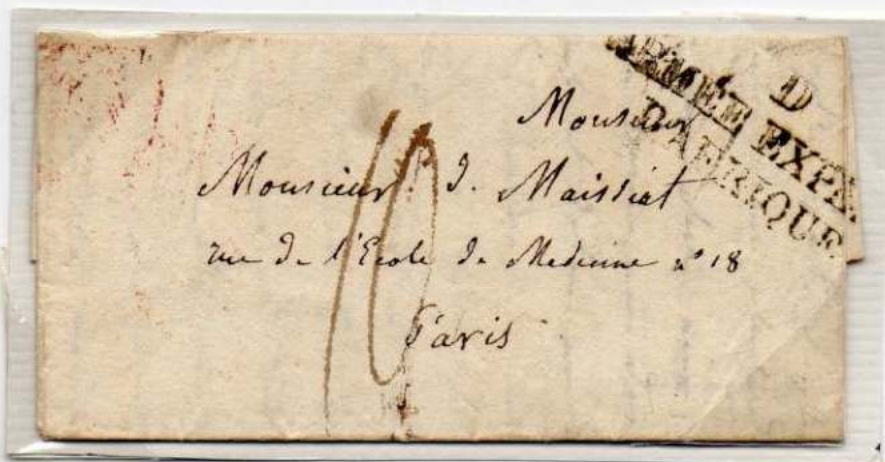 D
ARMÉE EXPRE.
D'AFRIQUE
Monsieur
Monsieur J. Maissiat
rue de l'Ecole de Medecine n° 18
Paris
10